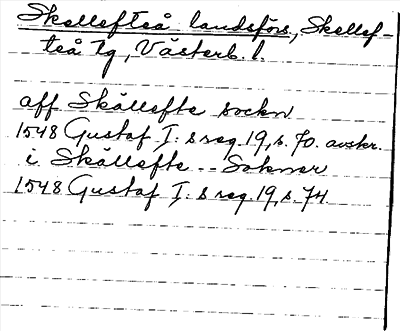 Skellefteå landsförs, Skellef-
teå tg, Västerb. l.
aff Skällefte sockn
1548 Gustaf I: s reg. 19, s. 70. avskr.
i Skällefte -- Soknar
1548 Gustaf I: s reg. 19, s. 74